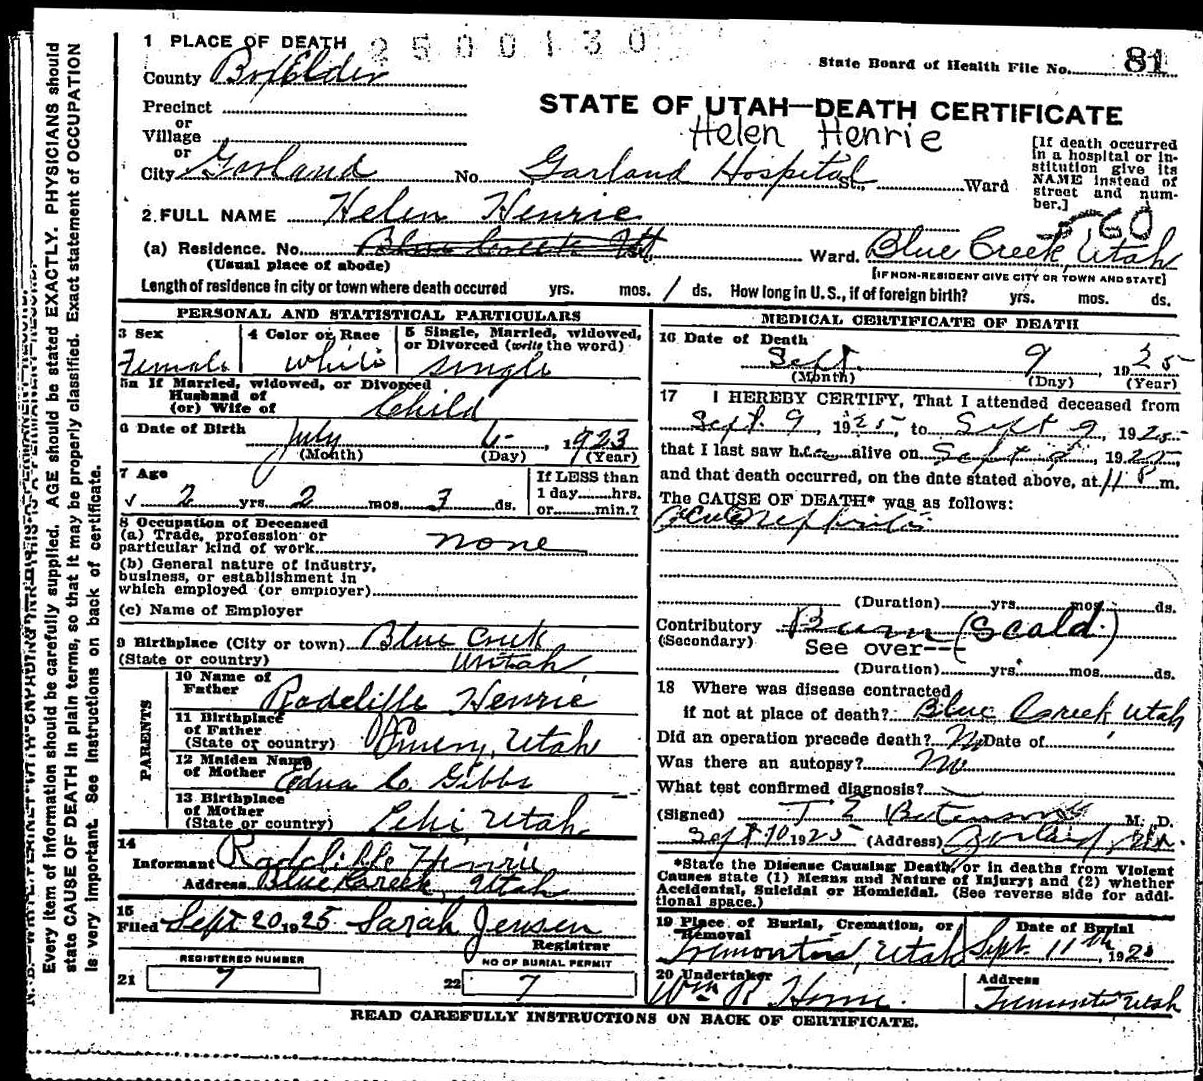 1 PLACE OF DEATH 2500130
County BoxElder
State Board of Health File No. 81
Precinct
or
Village
or
STATE OF UTAH—DEATH CERTIFICATE
Helen Henrie
City Garland No. Garland Hospital St., Ward
[If death occurred in a hospital or institution give its NAME instead of street and number.]
560
2. FULL NAME Helen Henrie
(a) Residence. No. Blue Creek Ut St. Ward. Blue Creek, Utah
(Usual place of abode) [IF NON-RESIDENT GIVE CITY OR TOWN AND STATE]
Length of residence in city or town where death occured yrs. mos. 1 ds. How long in U. S., if of foreign birth? yrs. mos. ds.
PERSONAL AND STATISTICAL PARTICULARS
3 Sex 4 Color or Race 5 Single, Married, widowed, or Divorced (write the word)
Female White Single
5a If Married, widowed, or Divorced
Husband of
(or) Wife of Child
6 Date of Birth July 6, 1923
(Month) (Day) (Year)
7 Age
2 yrs. 2 mos. 3 ds.
If LESS than
1 day hrs.
or min.?
8 Occupation of Deceased
(a) Trade, profession or
particular kind of work none
(b) General nature of industry,
business, or establishment in
which employed (or employer)
(c) Name of Employer
9 Birthplace (City or town) Blue Creek
(State or country) Utah
PARENTS
10 Name of
Father Radcliffe Henrie
11 Birthplace
of Father
(State or country) Emery, Utah
12 Maiden Name
of Mother Edna C. Gibbs
13 Birthplace
of Mother
(State or country) Lehi Utah
14
Informant Radcliffe Henrie
Address Blue Creek, Utah
15
Filed Sept 20 1925 Sarah Jensen
Registrar
REGISTERED NUMBER NO OF BURIAL PERMIT
21 7 22 7
MEDICAL CERTIFICATE OF DEATH
16 Date of Death
Sept. 9 1925
(Month) (Day) (Year)
17 I HEREBY CERTIFY, That I attended deceased from
Sept. 9, 1925, to Sept 9, 1925
that I last saw her alive on Sept 9, 1925,
and that death occurred, on the date stated above, at 11 P m.
The CAUSE OF DEATH* was as follows:
Acute Nephritis
(Duration) yrs. mos. ds.
Contributory Burn (Scald.)
(Secondary) See over--
(Duration) yrs. mos. ds.
18 Where was disease contracted
if not at place of death? Blue Creek, Utah
Did an operation precede death? No Date of
Was there an autopsy? No
What test confirmed diagnosis?
(Signed) T E Betenson M. D.
Sept 10 1925 (Address) Garland, Utah.
*State the Disease Causing Death, or in deaths from Violent
Causes state (1) Means and Nature of Injury; and (2) whether
Accidental, Suicidal or Homicidal. (See reverse side for addi-
tional space.)
19 Place of Burial, Cremation, or Removal Date of Burial
Tremonton, Utah Sept. 11th, 1925
20 Undertaker Address
Wm R. Horne. Tremonton Utah
READ CAREFULLY INSTRUCTIONS ON BACK OF CERTIFICATE.
Every item of information should be carefully supplied. AGE should be stated EXACTLY. PHYSICIANS should
state CAUSE OF DEATH in plain terms, so that it may be properly classified. Exact statement of OCCUPATION
is very important. See instructions on back of certificate.